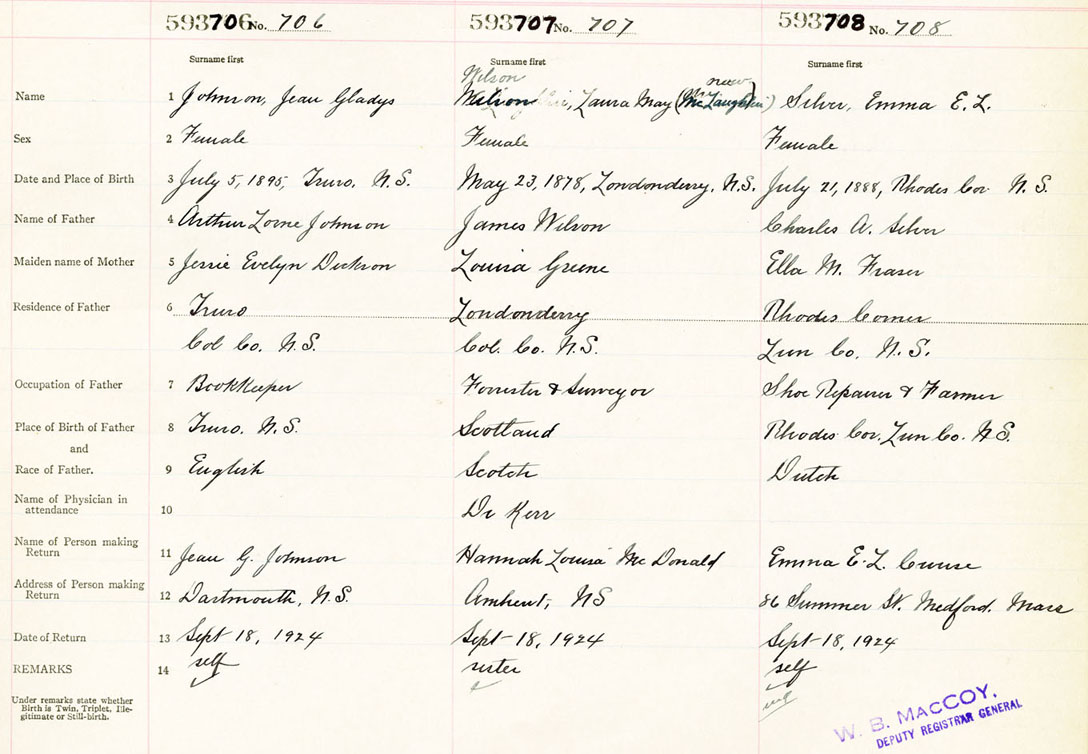 593706 No. 706 593707 No. 707 593708 No. 708
Surname first Surname first Surname first
Wilson now
Name 1 Johnson, Jean Gladys Laura May (McLaughlin) Silver, Emma E. L.
Sex 2 Female Female Female
Date and Place of Birth 3 July 5, 1895, Truro, N.S. May 23, 1878, Londonderry, N.S. July 21, 1888, Rhodes Cor N.S.
Name of Father 4 Arthur Lorne Johnson James Wilson Charles A. Silver
Maiden name of Mother 5 Jessie Evelyn Dickson Louisa Greene Ella M. Fraser
Residence of Father 6 Truro Londonderry Rhodes Corner
Col Co. N.S. Col. Co. N.S. Lun Co. N.S.
Occupation of Father 7 BookKeeper Forrester & Surveyor Shoe Repairer & Farmer
Place of Birth of Father 8 Truro. N.S. Scotland Rhodes Cor. Lun Co. N.S.
and
Race of Father. 9 English Scotch Dutch
Name of Physician in
attendance 10 Dr Kerr
Name of Person making
Return 11 Jean G. Johnson Hannah Louisa McDonald Emma E. L.
Address of Person making
Return 12 Dartmouth, N.S. Amherst, NS 86 Summer St. Medford. Mass
Date of Return 13 Sept 18, 1924 Sept 18, 1924 Sept 18, 1924
REMARKS 14 self sister self
Under remarks state whether
Birth is Twin, Triplet, Ille-
gitimate or Still-birth.
W. B. MACCOY,
DEPUTY REGISTRAR GENERAL